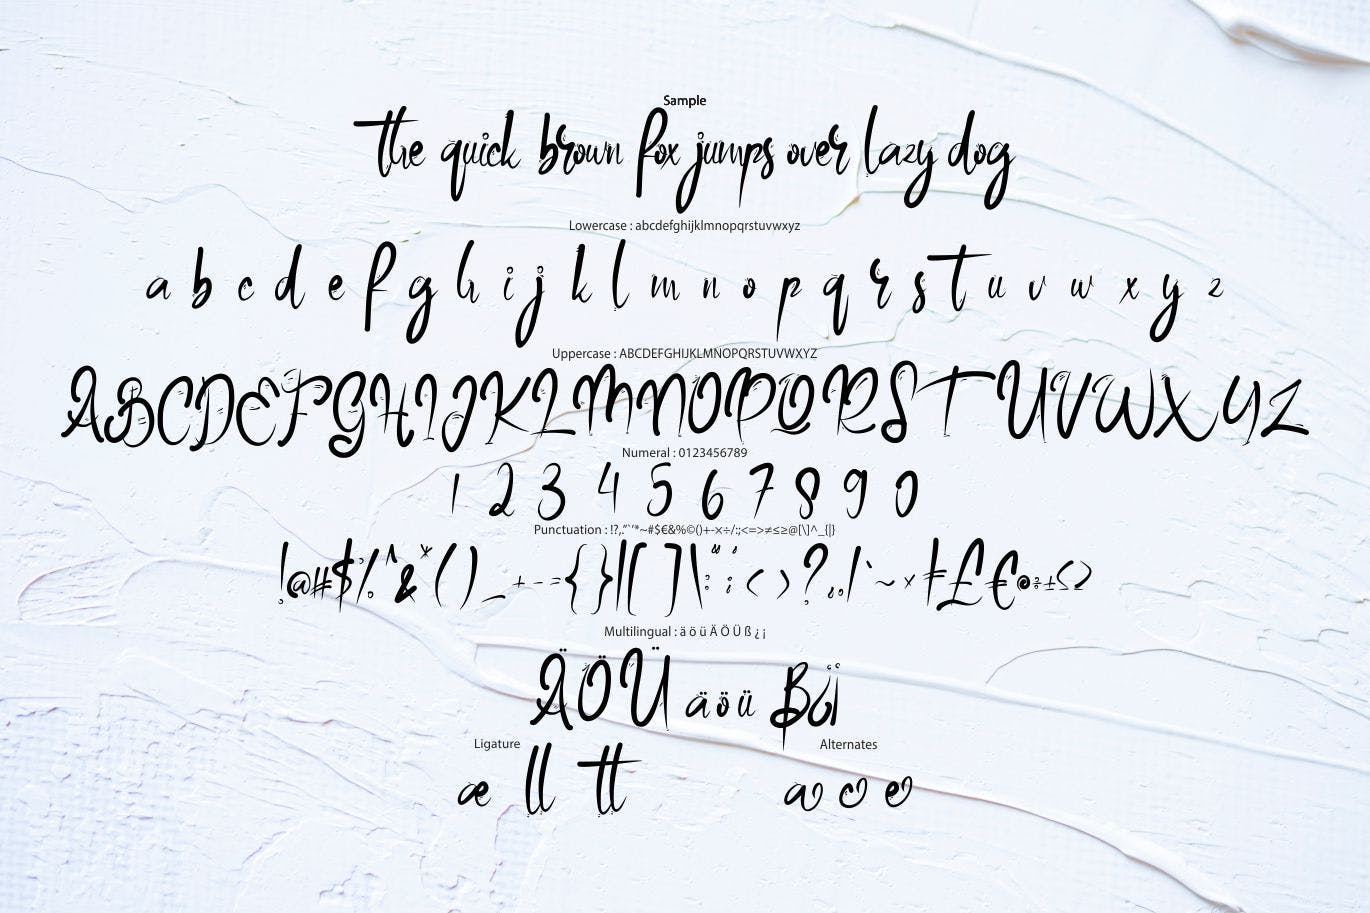 Sample
the quick brown fox jumps over lazy dog
Lowercase : abcdefghijklmnopqrstuvwxyz
a b c d e f g h i j k l m n o p q r s t u v w x y z
Uppercase : ABCDEFGHIJKLMNOPQRSTUVWXYZ
A B C D E F G H I J K L M N O P Q R S T U V W X Y Z
Numeral : 0123456789
1 2 3 4 5 6 7 8 9 0
Punctuation : !?,.”“‘’*~#$€&%©()+-×÷/:;<=>≠≤≥@[\]^_{|}
!@#$%^&*()_+-={}|[]\:;<>?,./`~×≠£€©÷±≤≥
Multilingual : ä ö ü Ä Ö Ü ß ¿ ¡
ÄÖÜ äöü ß¿¡
Ligature Alternates
æ ll tt a o e